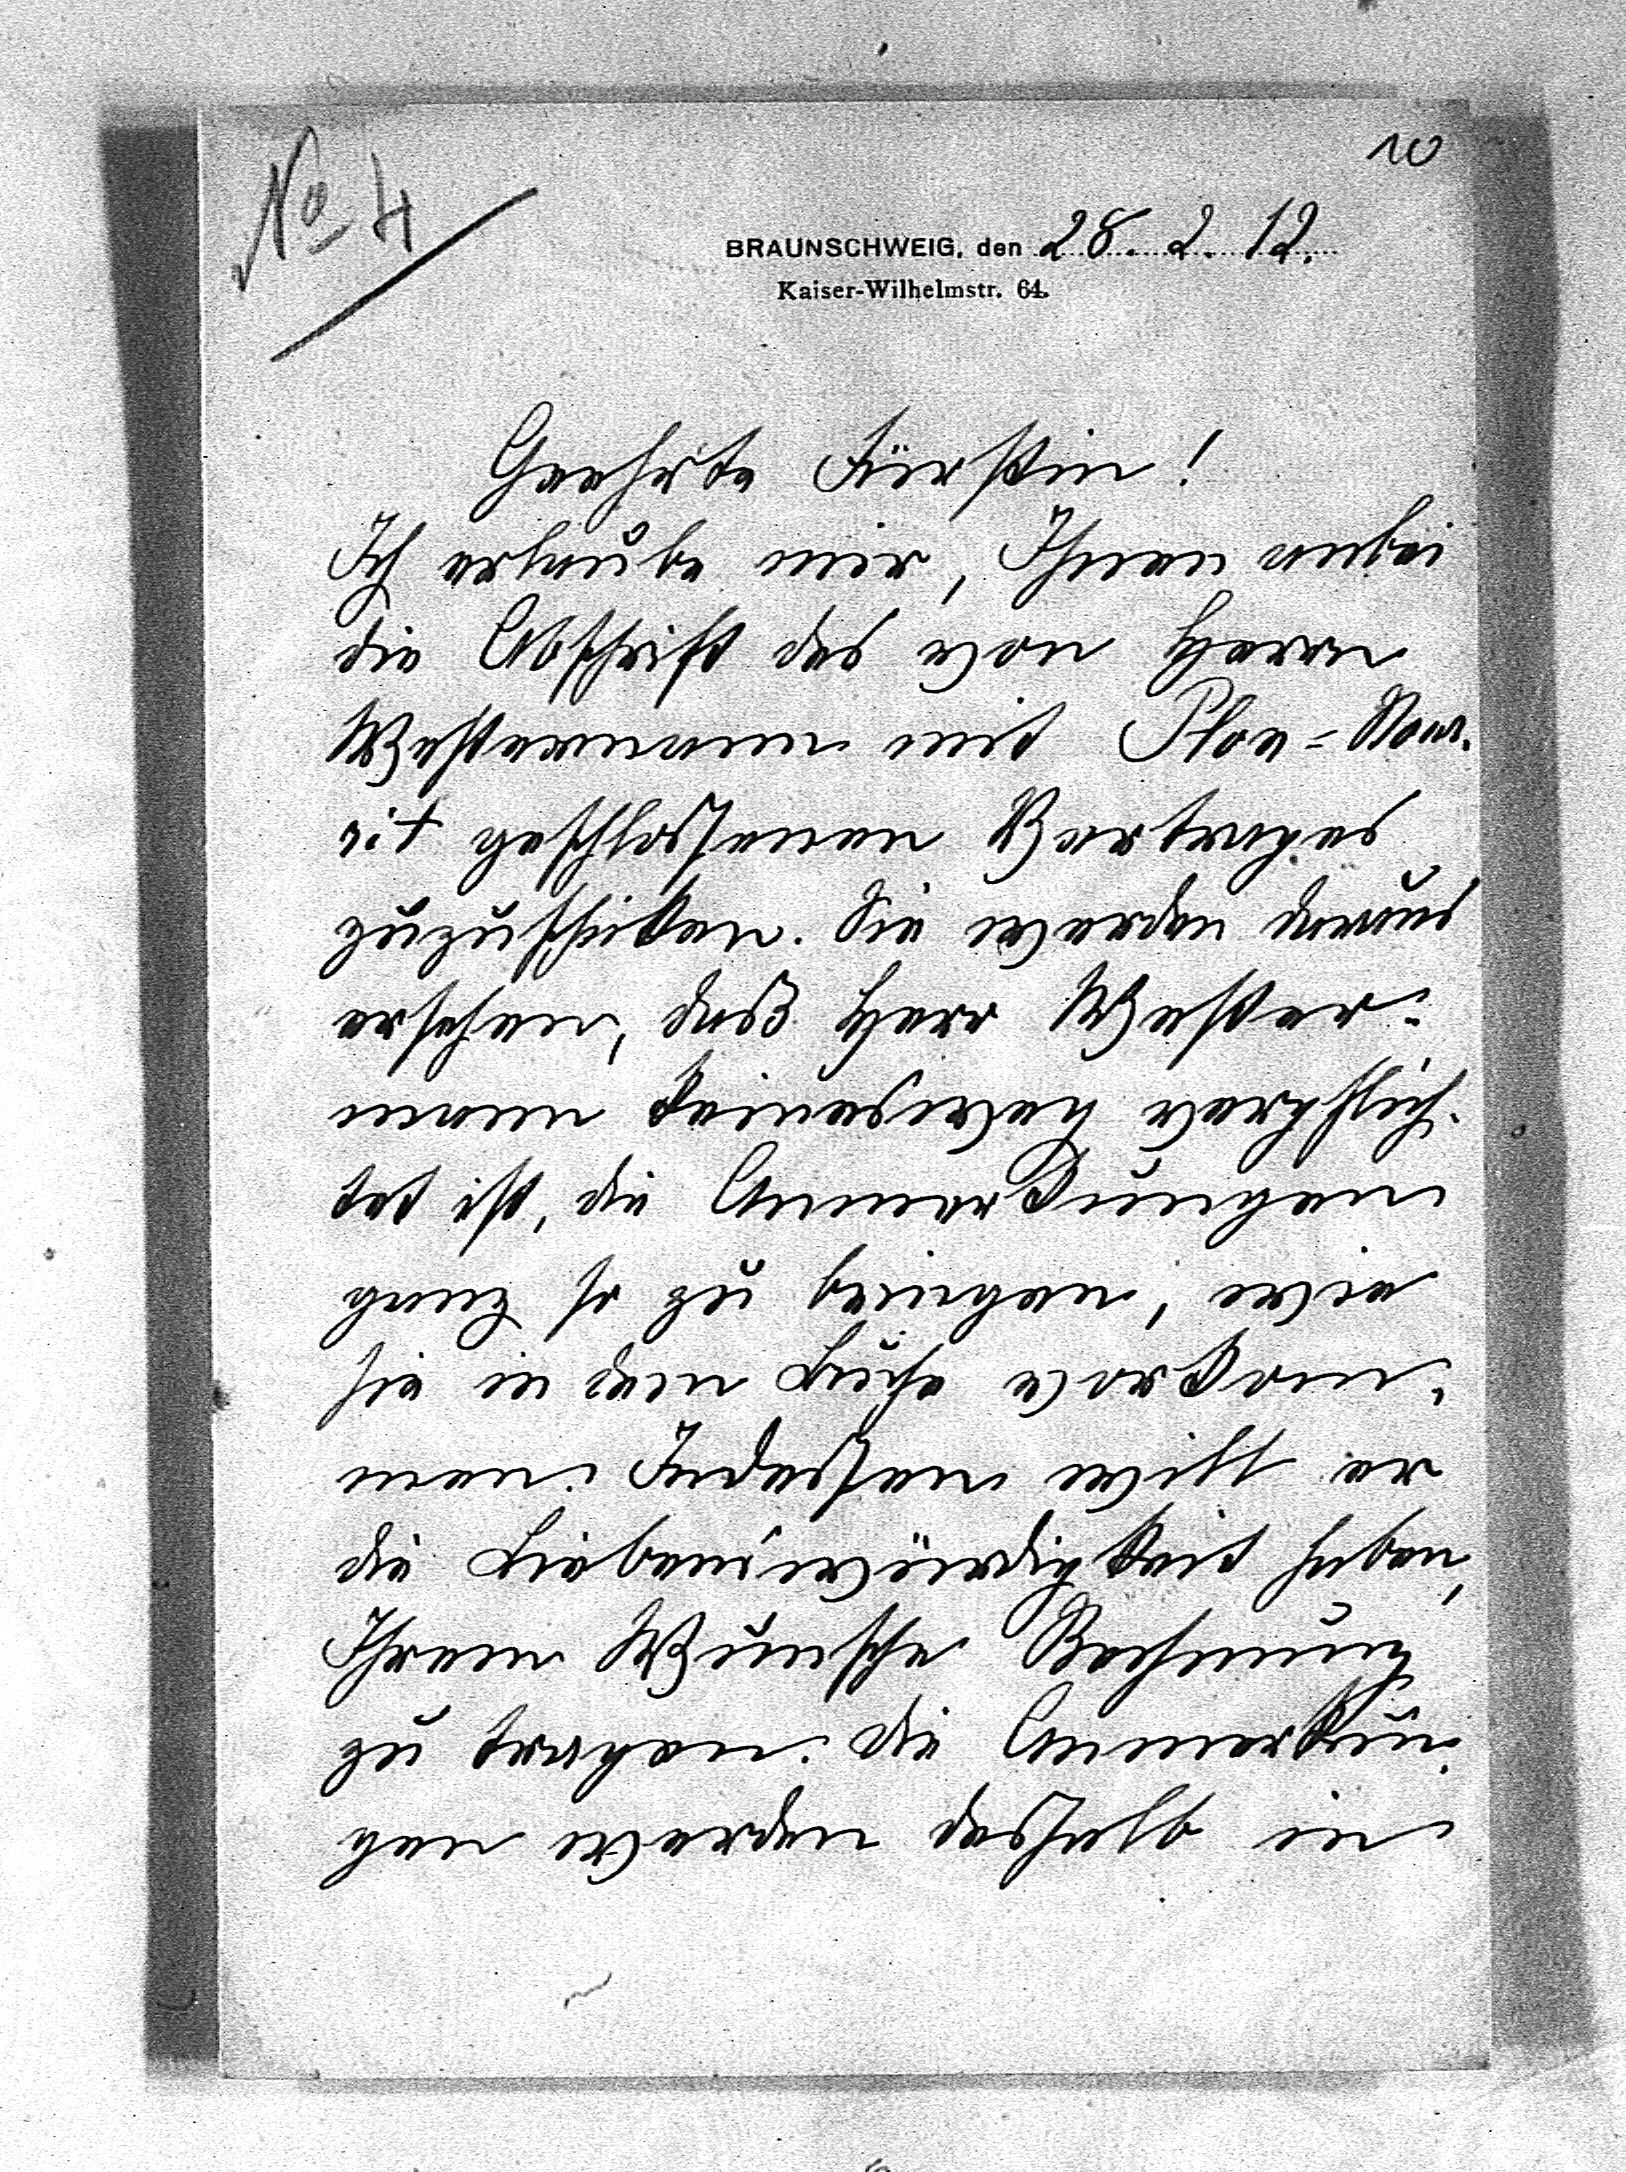 No 4
10
BRAUNSCHWEIG, den 28. 2. 12.
Kaiser-Wilhelmstr. 64.
Geehrte Fürstin!
Ich erlaube mir, Ihnen anbei
die Abschrift des von Herrn
Westermann mit Plon-Nour-
rit geschlossenen Vertrages
zuzuschicken. Sie werden daraus
ersehen, dass Herr Wester-
mann keineswegs verpflich-
tet ist, die Anmerkungen
ganz so zu bringen, wie
sie in dem Buche vorkom-
men. Indessen will er
die Liebenswürdigkeit haben,
Ihrem Wunsche Rechnung
zu tragen. Die Anmerkun-
gen werden deshalb in